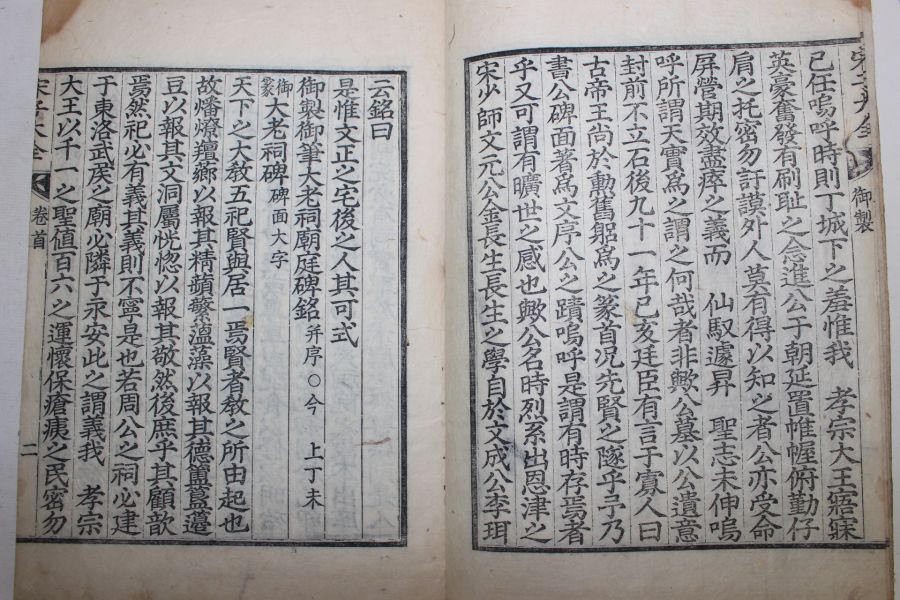 御製
己任嗚呼時則丁城下之羞惟我　孝宗大王寤寐
英豪奮發有刷恥之念進公于朝延置帷幄俯勤仔
肩之托密勿訏謨外人莫有得以知之者公亦受命
屛營期效盡瘁之義而　仙馭遽昇　聖志未伸嗚
呼所謂天實爲之謂之何哉者非歟公墓以公遺意
封前不立石後九十一年己亥廷臣有言于寡人曰
古帝王尙於勳舊躬爲之篆首况先賢之隧乎予乃
書公碑面著爲文序公之蹟嗚呼是謂有時存焉者
乎又可謂有曠世之感也歟公名時烈系出恩津之
宋少師文元公金長生長生之學自於文成公李珥
云銘曰
是惟文正之宅後之人其可式
御製御筆大老祠廟庭碑銘 幷序○今　上丁未
御篆大老祠碑 碑面大字
天下之大敎五祀賢與居一焉賢者敎之所由起也
故燔燎羶薌以報其精蘋蘩薀藻以報其德簠簋籩
豆以報其文洞屬恍惚以報其敬然後庶乎其顧歆
焉然祀必有義其義則不寧是也若周公之祠必建
于東洛武矦之廟必隣于永安此之謂義我　孝宗
大王以千一之聖値百六之運懷保瘡痍之民密勿
宋子大全
卷首
二